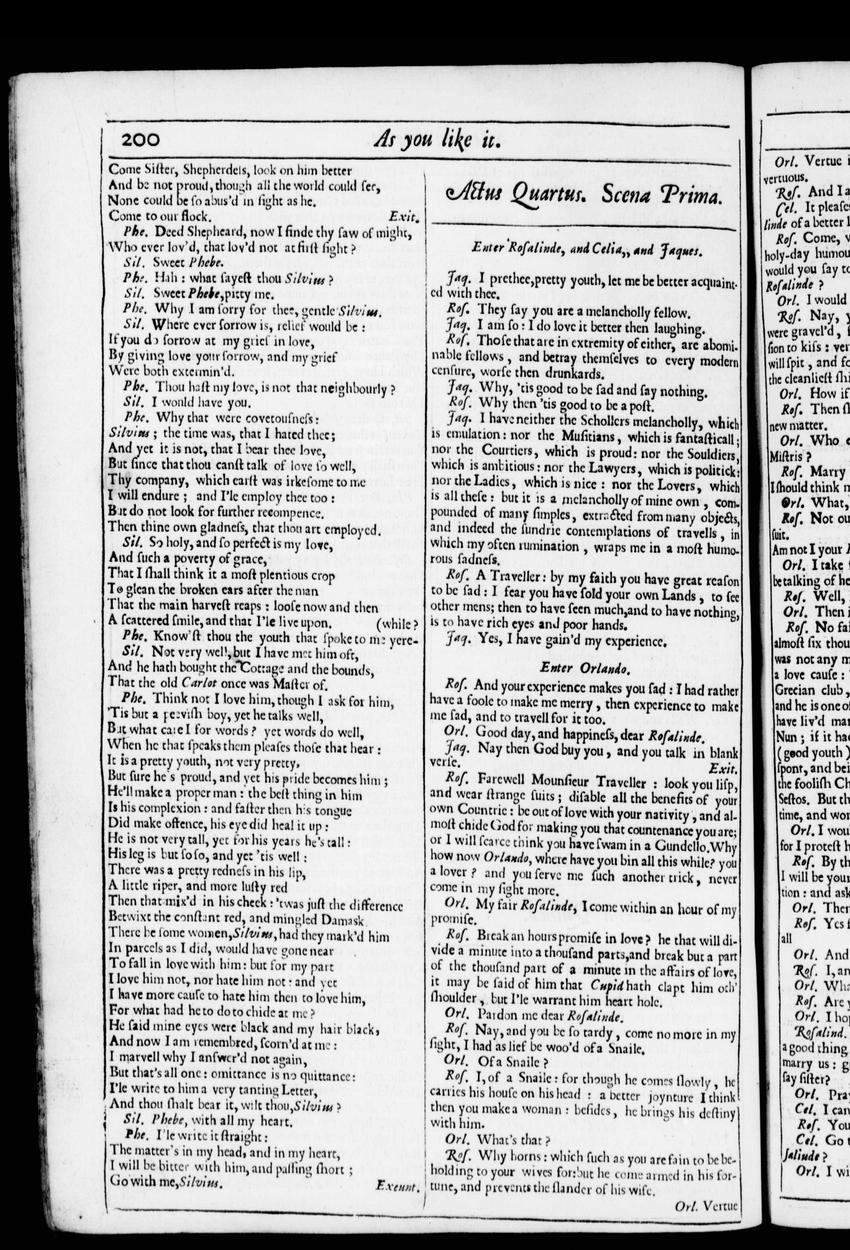 200
As you like it.
Come Sister, Shepherdess, look on him better
And be not proud, though all the world could see,
None could be so abus'd in sight as he.
Come to our flock. Exit.
Phe. Deed Shepheard, now I finde thy saw of might,
Who ever lov'd, that lov'd not at first sight?
Sil. Sweet Phebe.
Phe. Hah: what sayest thou Silvius?
Sil. Sweet Phebe, pitty me.
Phe. Why I am sorry for thee, gentle Silvius.
Sil. Where ever sorrow is, relief would be:
If you do sorrow at my grief in love,
By giving love your sorrow, and my grief
Were both extermin'd.
Phe. Thou hast my love, is not that neighbourly?
Sil. I would have you.
Phe. Why that were covetousness:
Silvius; the time was, that I hated thee;
And yet it is not, that I bear thee love,
But since that thou canst talk of love so well,
Thy company, which earst was irkesome to me
I will endure; and I'le employ thee too:
But do not look for further recompence.
Then thine own gladness, that thou art employed.
Sil. So holy, and so perfect is my love,
And such a poverty of grace,
That I shall think it a most plentious crop
To glean the broken ears after the man
That the main harvest reaps: loose now and then
A scattered smile, and that I'le live upon. (while?
Phe. Know'st thou the youth that spoke to me yere-
Sil. Not very well, but I have met him oft,
And he hath bought the Cottage and the bounds,
That the old Carlot once was Master of.
Phe. Think not I love him, though I ask for him,
'Tis but a peevish boy, yet he talks well,
But what care I for words? yet words do well,
When he that speaks them pleases those that hear:
It is a pretty youth, not very pretty,
But sure he's proud, and yet his pride becomes him;
He'll make a proper man: the best thing in him
Is his complexion: and faster then his tongue
Did make offence, his eye did heal it up:
He is not very tall, yet for his years he's tall:
His leg is but so so, and yet 'tis well:
There was a pretty redness in his lip,
A little riper, and more lusty red
Then that mix'd in his cheek: 'twas just the difference
Betwixt the constant red, and mingled Damask
There be some women, Silvius, had they mark'd him
In parcels as I did, would have gone near
To fall in love with him: but for my part
I love him not, nor hate him not: and yet
I have more cause to hate him then to love him,
For what had he to do to chide at me?
He said mine eyes were black and my hair black,
And now I am remembred, scorn'd at me:
I marvell why I answer'd not again,
But that's all one: omittance is no quittance:
I'le write to him a very tanting Letter,
And thou shalt bear it, wilt thou, Silvius?
Sil. Phebe, with all my heart.
Phe. I'le write it straight:
The matter's in my head, and in my heart,
I will be bitter with him, and passing short;
Go with me, Silvius. Exeunt.
Actus Quartus. Scena Prima.
Enter Rosalinde, and Celia,, and Jaques.
Jaq. I prethee, pretty youth, let me be better acquaint-
ed with thee.
Ros. They say you are a melancholly fellow.
Jaq. I am so: I do love it better then laughing.
Ros. Those that are in extremity of either, are abomi-
nable fellows, and betray themselves to every modern
censure, worse then drunkards.
Jaq. Why, 'tis good to be sad and say nothing.
Ros. Why then 'tis good to be a post.
Jaq. I have neither the Schollers melancholly, which
is emulation: nor the Musitians, which is fantasticall;
nor the Courtiers, which is proud: nor the Souldiers,
which is ambitious: nor the Lawyers, which is politick:
nor the Ladies, which is nice: nor the Lovers, which
is all these: but it is a melancholly of mine own, com-
pounded of many simples, extracted from many objects,
and indeed the sundrie contemplations of travells, in
which my often rumination, wraps me in a most humo-
rous sadness.
Ros. A Traveller: by my faith you have great reason
to be sad: I fear you have sold your own Lands, to see
other mens; then to have seen much, and to have nothing,
is to have rich eyes and poor hands.
Jaq. Yes, I have gain'd my experience.
Enter Orlando.
Ros. And your experience makes you sad: I had rather
have a foole to make me merry, then experience to make
me sad, and to travell for it too.
Orl. Good day, and happiness, dear Rosalinde.
Jaq. Nay then God buy you, and you talk in blank
verse. Exit.
Ros. Farewell Mounsieur Traveller: look you lisp,
and wear strange suits; disable all the benefits of your
own Countrie: be out of love with your nativity, and al-
most chide God for making you that countenance you are;
or I will scarce think you have swam in a Gundello. Why
how now Orlando, where have you bin all this while? you
a lover? and you serve me such another trick, never
come in my sight more.
Orl. My fair Rosalinde, I come within an hour of my
promise.
Ros. Break an hours promise in love? he that will di-
vide a minute into a thousand parts, and break but a part
of the thousand part of a minute in the affairs of love,
it may be said of him that Cupid hath clapt him oth'
shoulder, but I'le warrant him heart hole.
Orl. Pardon me dear Rosalinde.
Ros. Nay, and you be so tardy, come no more in my
sight, I had as lief be woo'd of a Snaile.
Orl. Of a Snaile?
Ros. I, of a Snaile: for though he comes slowly, he
carries his house on his head: a better joynture I think
then you make a woman: besides, he brings his destiny
with him.
Orl. What's that?
Ros. Why horns: which such as you are fain to be be-
holding to your wives for: but he come armed in his for-
tune, and prevents the slander of his wife.
Orl. Vertue
Orl. Vertue i
vertuous.
Ros. And I a
Cel. It pleases
linde of a better l
Ros. Come, w
holy-day humou
would you say to
Rosalinde?
Orl. I would
Ros. Nay, y
were gravel'd, f
sion to kiss: ver
will spit, and fo
the cleanliest shi
Orl. How if
Ros. Then sh
new matter.
Orl. Who c
Mistris?
Ros. Marry
I should think m
Orl. What,
Ros. Not ou
suit.
Am not I your R
Orl. I take
be talking of he
Ros. Well,
Orl. Then i
Ros. No fai
almost six thou
was not any m
a love cause:
Grecian club,
and he is one of
have liv'd man
Nun; if it had
(good youth)
spont, and bei
the foolish Ch
Sestos. But th
time, and wor
Orl. I wou
for I protest h
Ros. By th
I will be your
tion: and ask
Orl. Then
Ros. Yes f
all
Orl. And
Ros. I, an
Orl. Wha
Ros. Are y
Orl. I hop
Rosalind.
a good thing
marry us: g
say sister?
Orl. Pray
Cel. I can
Ros. You
Cel. Go t
salinde?
Orl. I wi